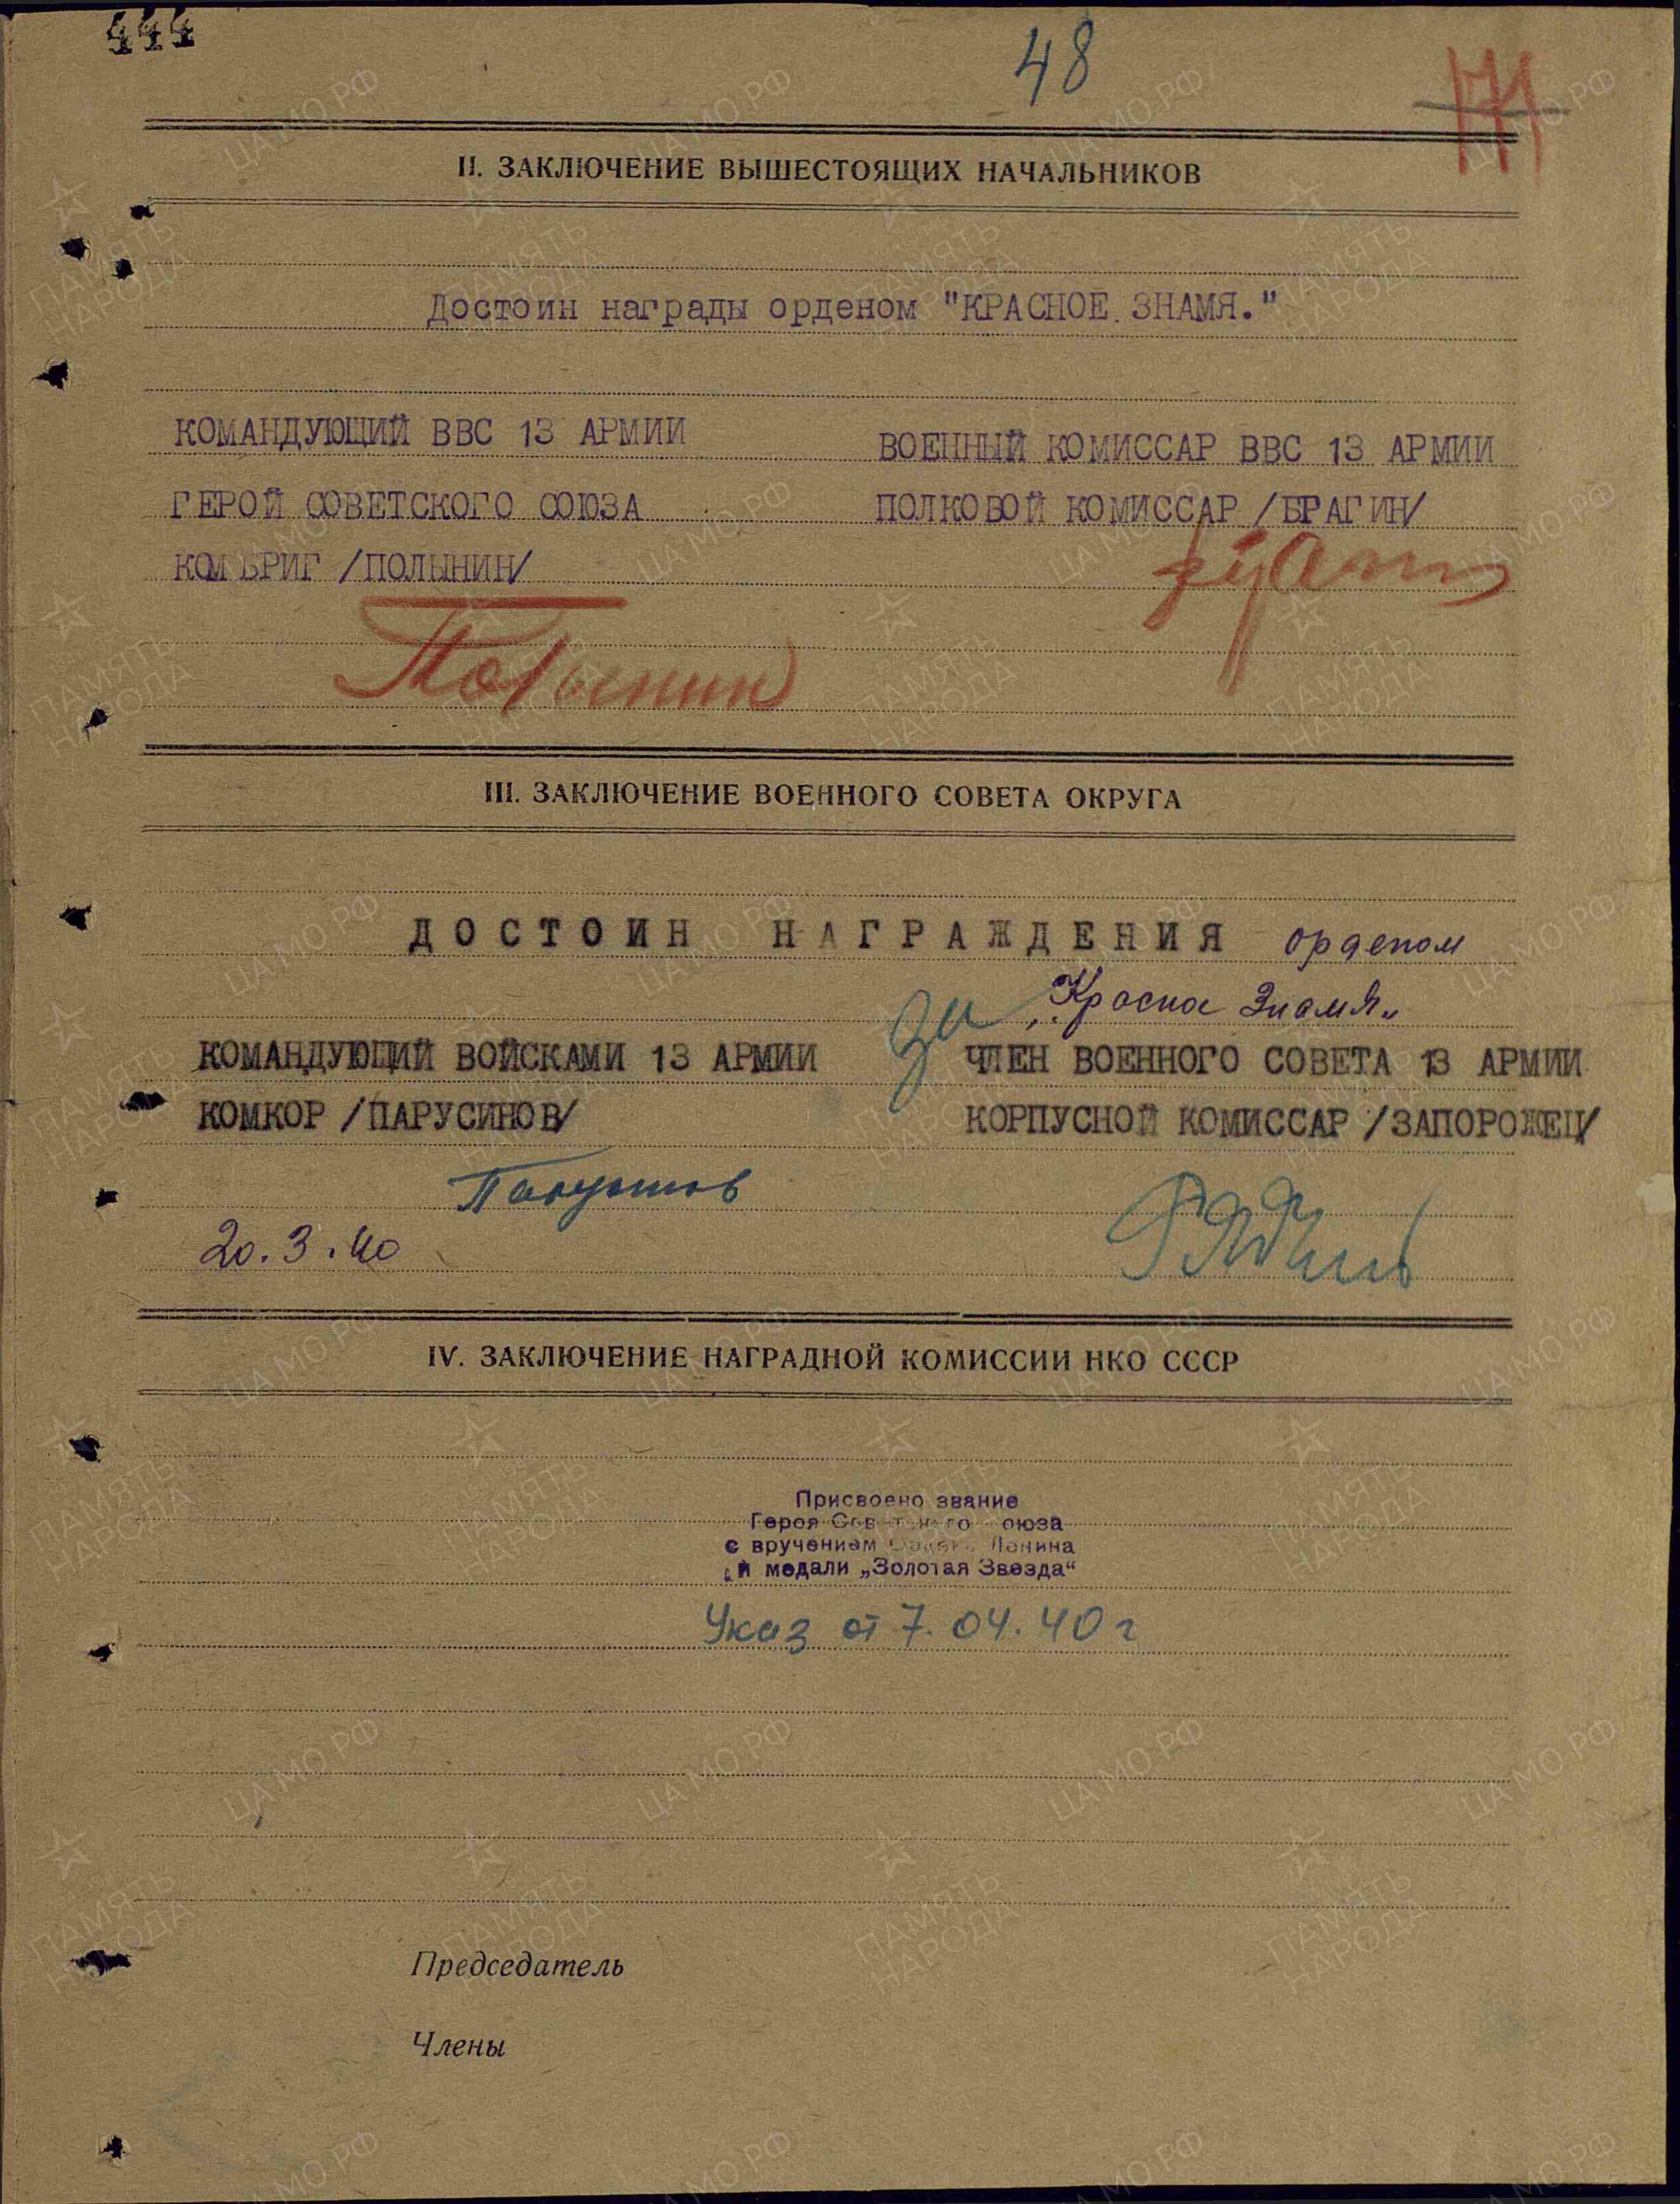 444
48
171
II. ЗАКЛЮЧЕНИЕ ВЫШЕСТОЯЩИХ НАЧАЛЬНИКОВ
Достоин награды орденом "КРАСНОЕ ЗНАМЯ."
КОМАНДУЮЩИЙ ВВС 13 АРМИИ
ГЕРОЙ СОВЕТСКОГО СОЮЗА
КОМБРИГ /ПОЛЫНИН/
Полынин
ВОЕННЫЙ КОМИССАР ВВС 13 АРМИИ
ПОЛКОВОЙ КОМИССАР /БРАГИН/
III. ЗАКЛЮЧЕНИЕ ВОЕННОГО СОВЕТА ОКРУГА
ДОСТОИН НАГРАЖДЕНИЯ орденом
„Красное Знамя„
КОМАНДУЮЩИЙ ВОЙСКАМИ 13 АРМИИ
КОМКОР /ПАРУСИНОВ/
Парусинов
20.3.40
за
ЧЛЕН ВОЕННОГО СОВЕТА 13 АРМИИ
КОРПУСНОЙ КОМИССАР /ЗАПОРОЖЕЦ/
IV. ЗАКЛЮЧЕНИЕ НАГРАДНОЙ КОМИССИИ НКО СССР
Присвоено звание
Героя Советского Союза
с вручением Ордена Ленина
и медали „Золотая Звезда“
Указ от 7.04.40 г
Председатель
Члены
ПАМЯТЬ НАРОДА
ЦАМО.РФ